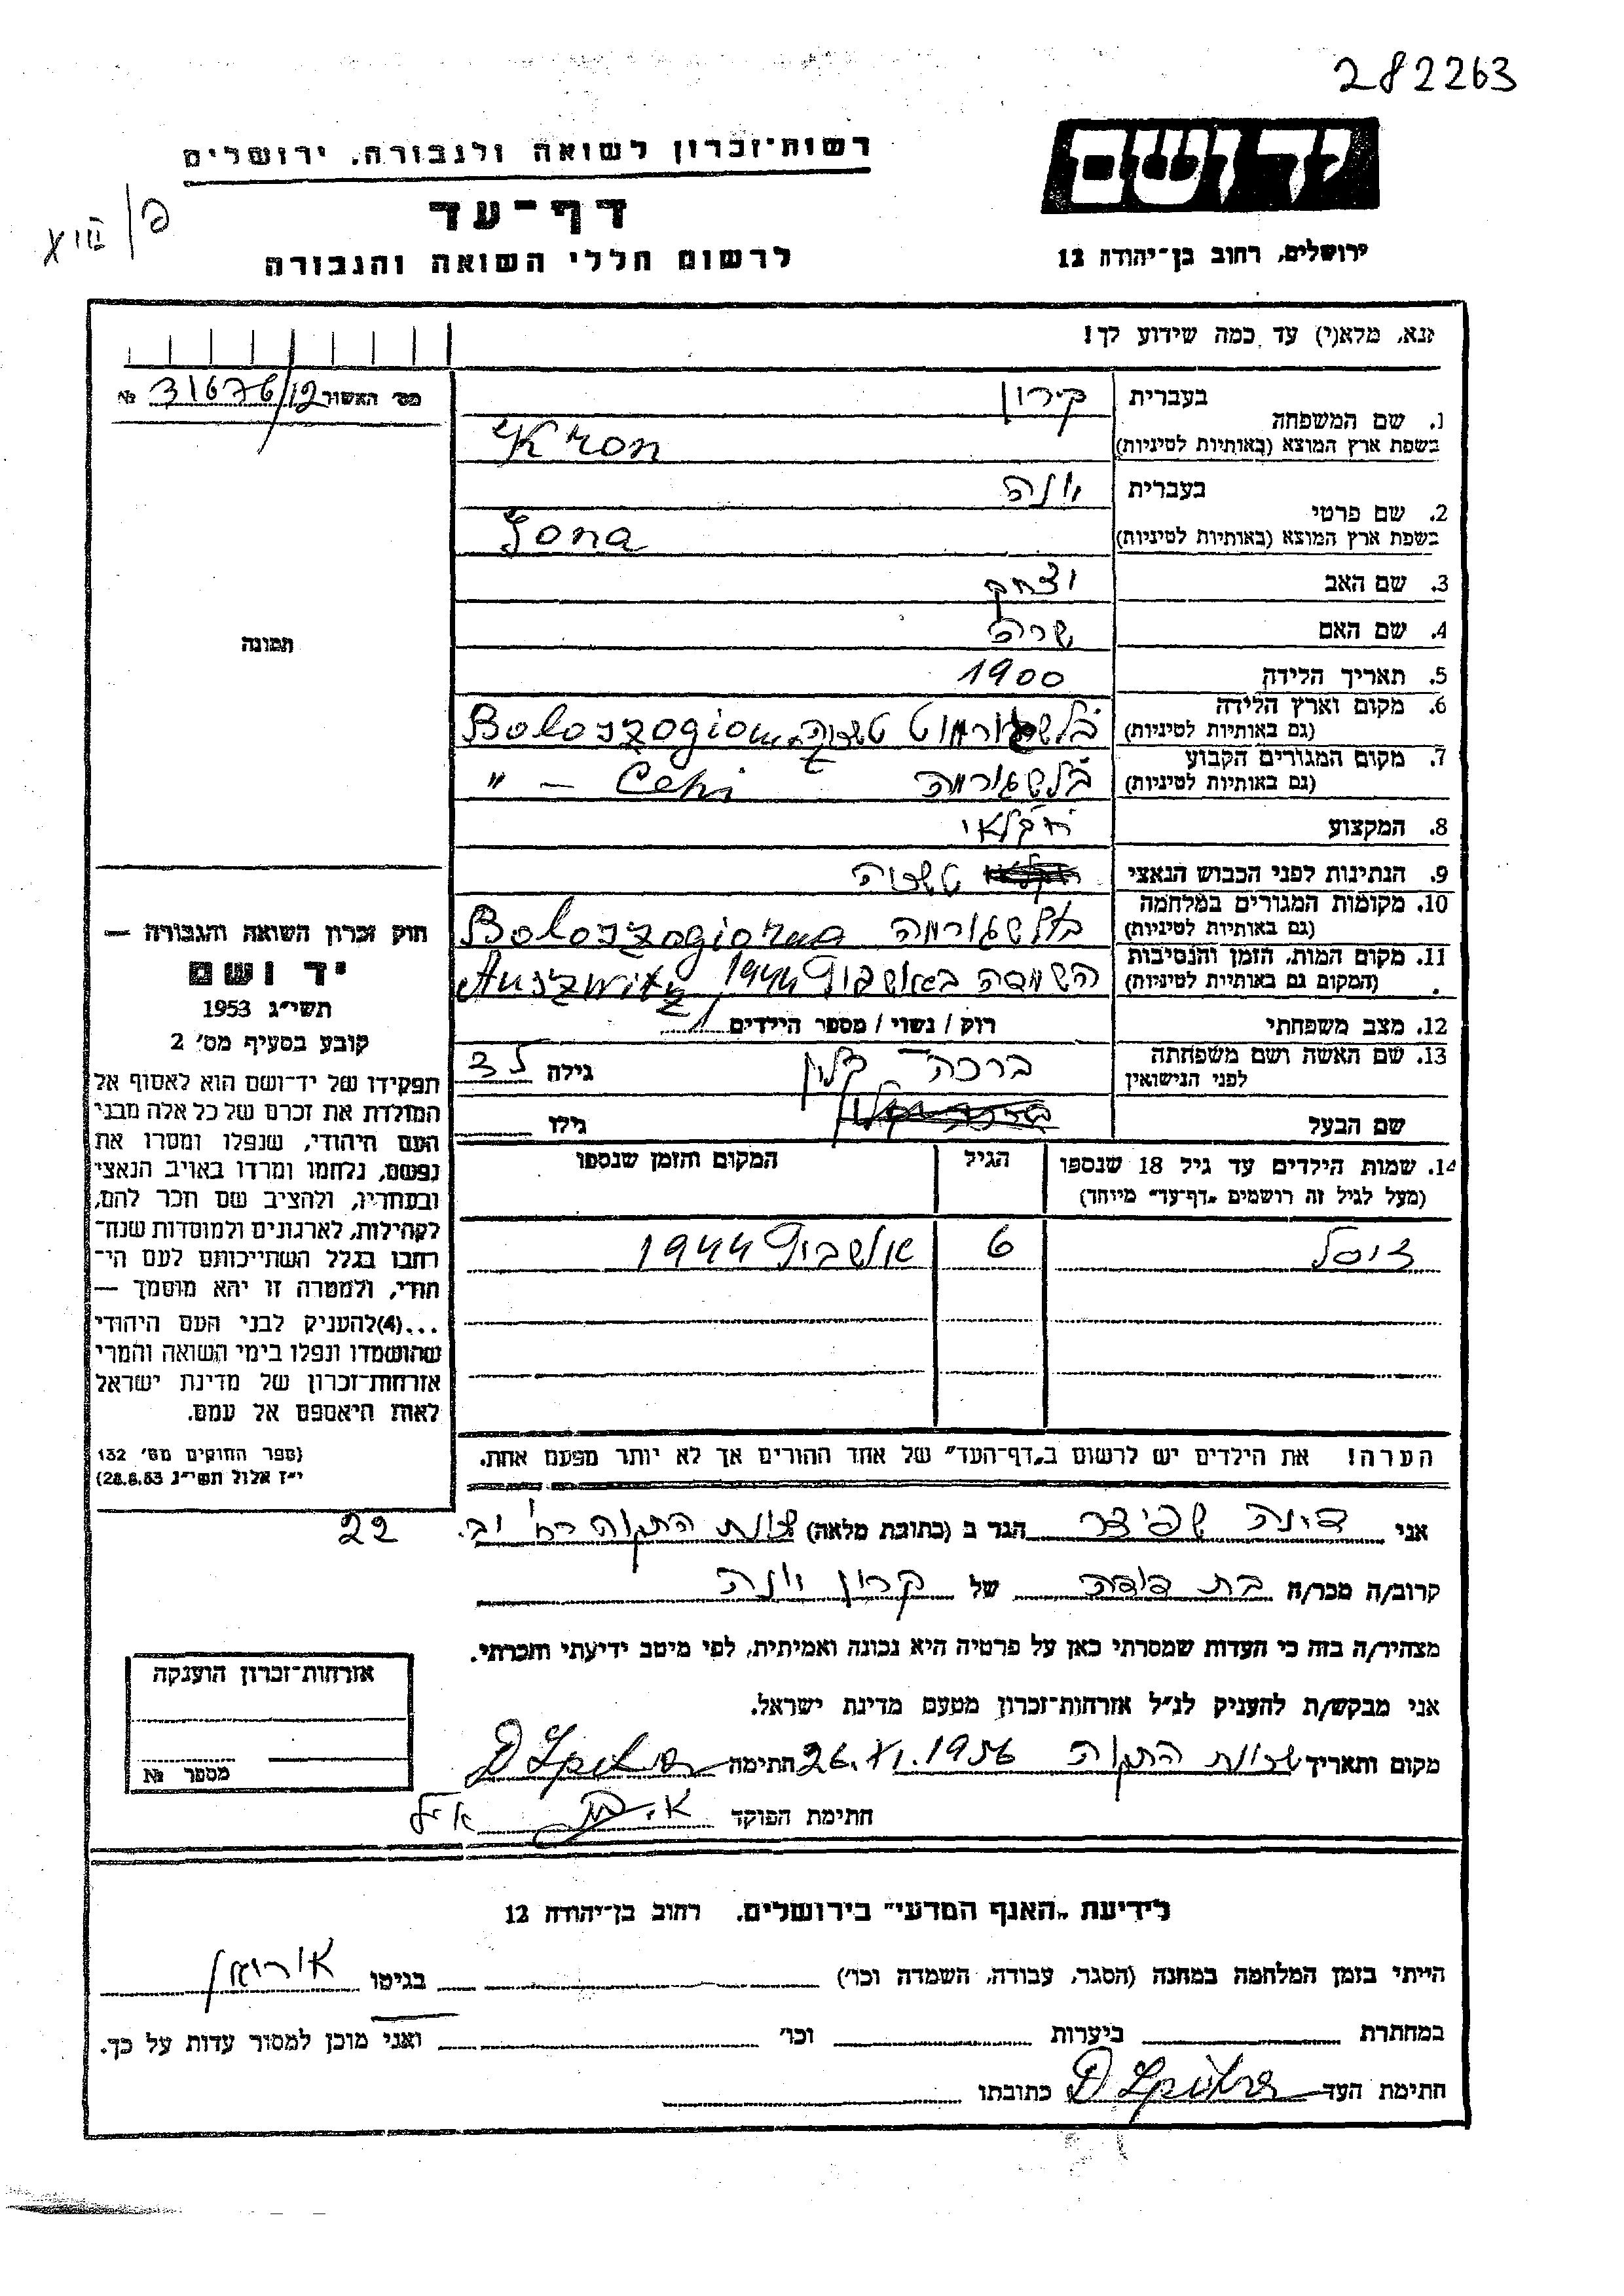 282263
יד ושם
רשות־זכרון לשואה ולגבורה, ירושלים
דף־עד
XIII/פ
לרשום חללי השואה והגבורה
ירושלים, רחוב בן־יהודה 12
נא, מלא(י) עד כמה שידוע לך!
מס׳ האשור 31676/12 №
בעברית קירון
1. שם המשפחה
בשפת ארץ המוצא (באותיות לטיניות) Kron
בעברית יונה
2. שם פרטי
בשפת ארץ המוצא (באותיות לטיניות) Jona
3. שם האב יצחק
4. שם האם שרה
תמונה
5. תאריך הלידה 1900
6. מקום וארץ הלידה
(גם באותיות לטיניות)
7. מקום המגורים הקבוע
(גם באותיות לטיניות) " — Cehi
8. המקצוע חקלאי
9. הנתינות לפני הכבוש הנאצי
10. מקומות המגורים במלחמה
(גם באותיות לטיניות)
11. מקום המות, הזמן והנסיבות
(המקום גם באותיות לטיניות) 1944 Auszwitz
12. מצב משפחתי רוק / נשוי / מספר הילדים 1
13. שם האשה ושם משפחתה
לפני הנישואין ברכה גילה
שם הבעל גילו
14. שמות הילדים עד גיל 18 שנספו הגיל המקום והזמן שנספו
(מעל לגיל זה רושמים „דף־עד״ מייוחד)
6 אושביץ 1944
הערה! את הילדים יש לרשום ב„דף־העד״ של אחד ההורים אך לא יותר מפעם אחת.
חוק זכרון השואה והגבורה —
יד ושם
תשי״ג 1953
קובע בסעיף מס׳ 2
תפקידו של יד־ושם הוא לאסוף אל
המולדת את זכרם של כל אלה מבני
העם היהודי, שנפלו ומסרו את
נפשם, נלחמו ומרדו באויב הנאצי
ובעוזריו, ולהציב שם וזכר להם,
לקהילות, לארגונים ולמוסדות שנח־
רבו בגלל השתייכותם לעם הי־
הודי, ולמטרה זו יהא מוסמך —
...(4)להעניק לבני העם היהודי
שהושמדו ונפלו בימי השואה והמרי
אזרחות־זכרון של מדינת ישראל
לאות היאספם אל עמם.
(ספר החוקים מס׳ 132
י״ז אלול תשי״ג 28.8.53)
אני דינה שפיצר הגר ב (כתובת מלאה) שכונת התקוה רח׳ יב. 22
קרוב/ה מכר/ה בת דודה של קרון יונה
מצהיר/ה בזה כי העדות שמסרתי כאן על פרטיה היא נכונה ואמיתית, לפי מיטב ידיעתי והכרתי.
אני מבקש/ת להעניק לנ״ל אזרחות־זכרון מטעם מדינת ישראל.
מקום ותאריך שכונת התקוה 26.VI.1956 חתימה
חתימת הפוקד
אזרחות־זכרון הוענקה
מספר №
לידיעת „האגף המדעי״ בירושלים, רחוב בן־יהודה 12
הייתי בזמן המלחמה במחנה (הסגר, עבודה, השמדה וכו׳) בגיטו
במחתרת ביערות וכו׳ ואני מוכן למסור עדות על כך.
חתימת העד כתובתו